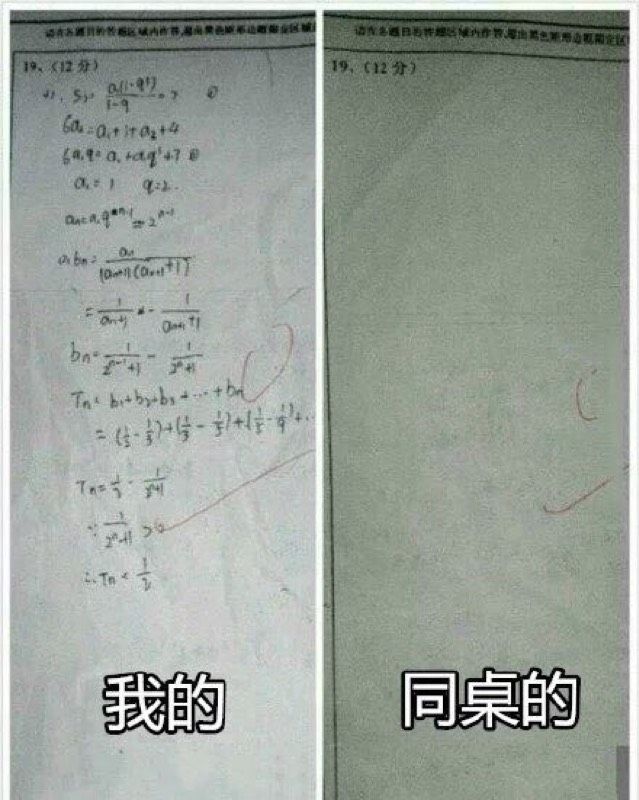 请在各题目的答题区域内作答,超出黑色矩形边框限定区域
19、(12分)
S₃= a₁(1-q³)/(1-q) =7 ①
6a₂=a₁+3+a₃+4
6a₁q=a₁+a₁q²+7 ②
a₁=1 q=2.
aₙ=a₁qⁿ⁻¹=2ⁿ⁻¹
bₙ= aₙ/((aₙ+1)(aₙ₊₁+1))
= 1/(aₙ+1) - 1/(aₙ₊₁+1)
bₙ= 1/(2ⁿ⁻¹+1) - 1/(2ⁿ+1)
Tₙ=b₁+b₂+b₃+⋯+bₙ
=(1/2-1/3)+(1/3-1/5)+(1/5-1/9)+⋯
Tₙ=1/2-1/(2ⁿ+1)
∵ 1/(2ⁿ+1) >0
∴Tₙ<1/2
我的
请在各题目的答题区域内作答,超出黑色矩形边框限定区
19、(12分)
同桌的